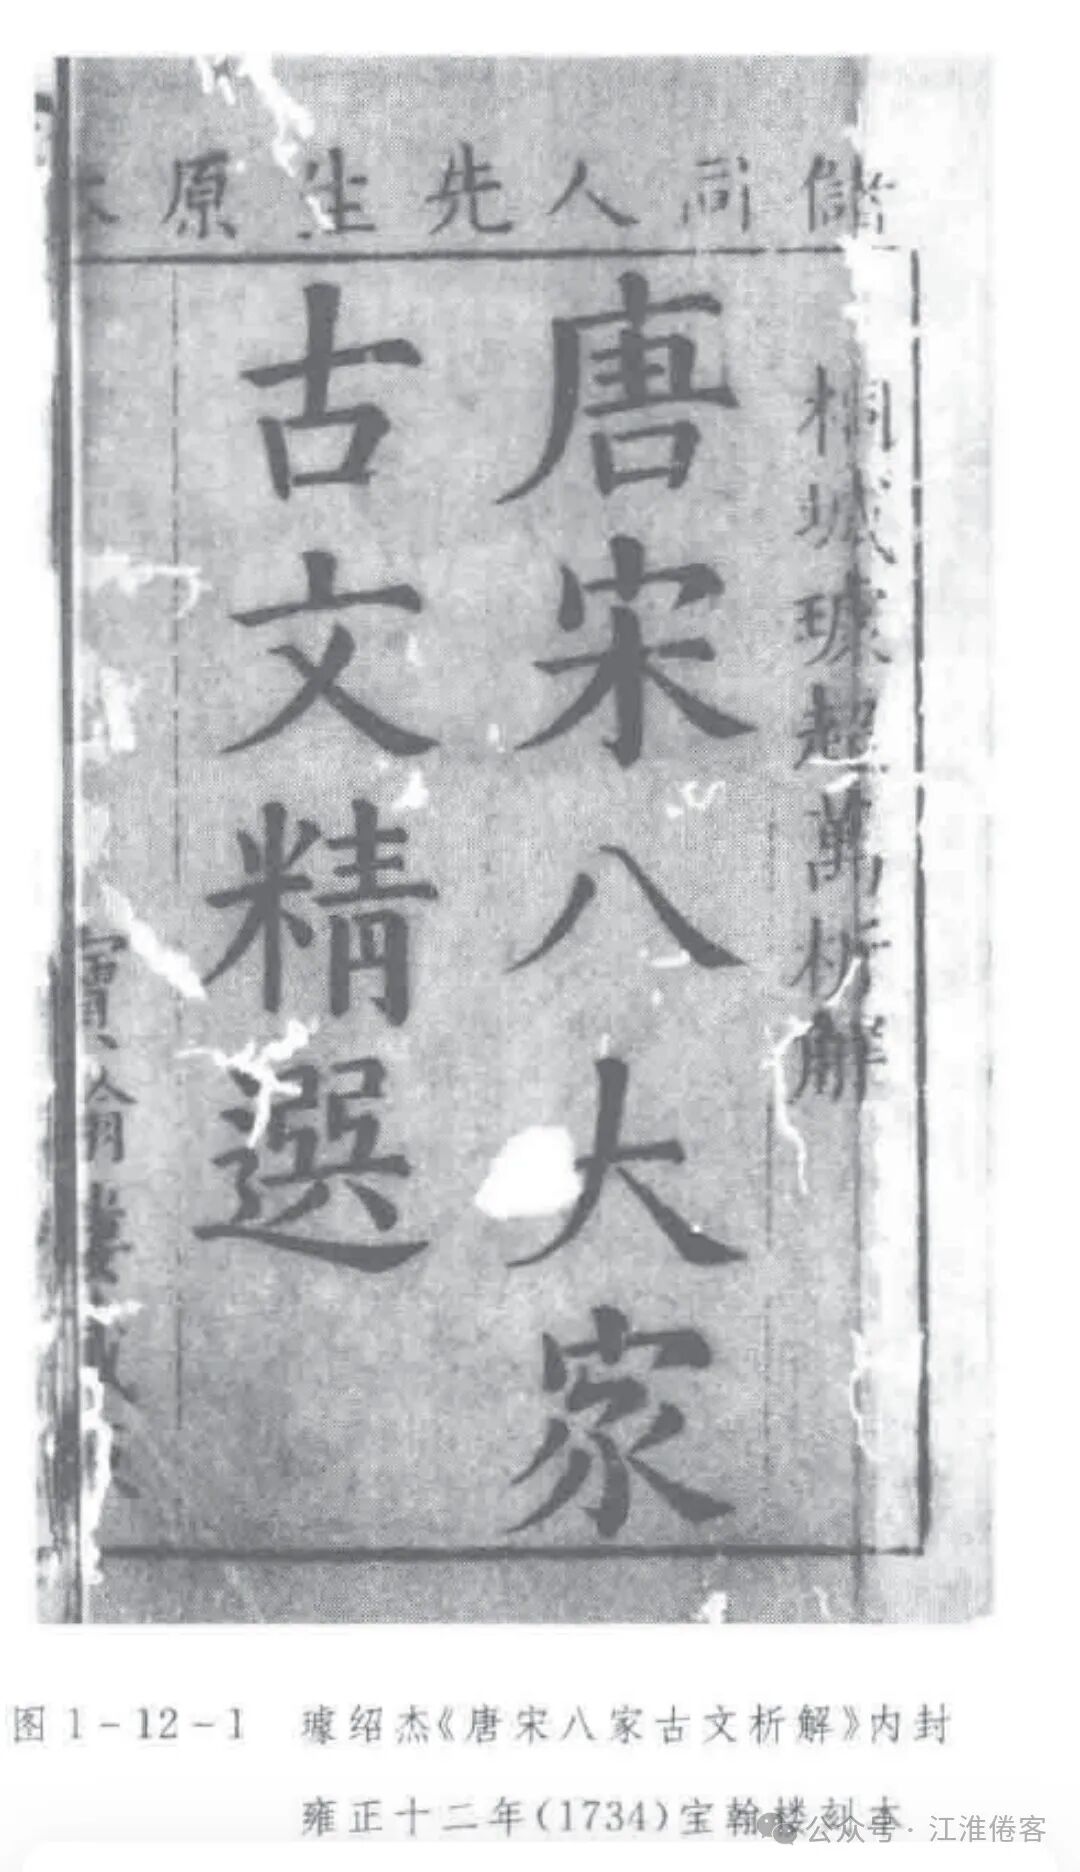 儲同人先生原本
桐城璩超萬析解
唐宋八大家
古文精選
寶翰樓
图1-12-1 璩绍杰《唐宋八家古文析解》内封
雍正十二年(1734)宝翰楼刻本
公众号·江淮倦客